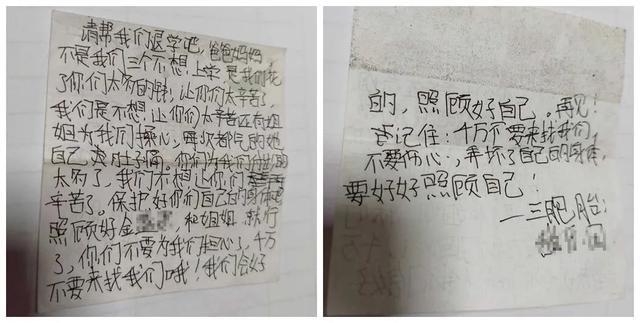 请帮我们退学吧,爸爸妈妈
不是我们三个不想上学,是我们花
了你们太多的钱,让你们太辛苦了,
我们是不想,让你们太辛苦还有姐
姐为我们操心,每次都气的她
自己 肚子痛,你们为我们付出的
太多了,我们不想让你们
辛苦了。保护好你们自己的身体吧
照顾好金 和姐姐 就行
了,你们不要为我们担心了,千万
不要来找我们哦!我们会好
的,照顾好自己。再见!
记住:千万不要来找我们,
不要伤心,弄坏了自己的身体,
要好好照顾自己!
—三胞胎: